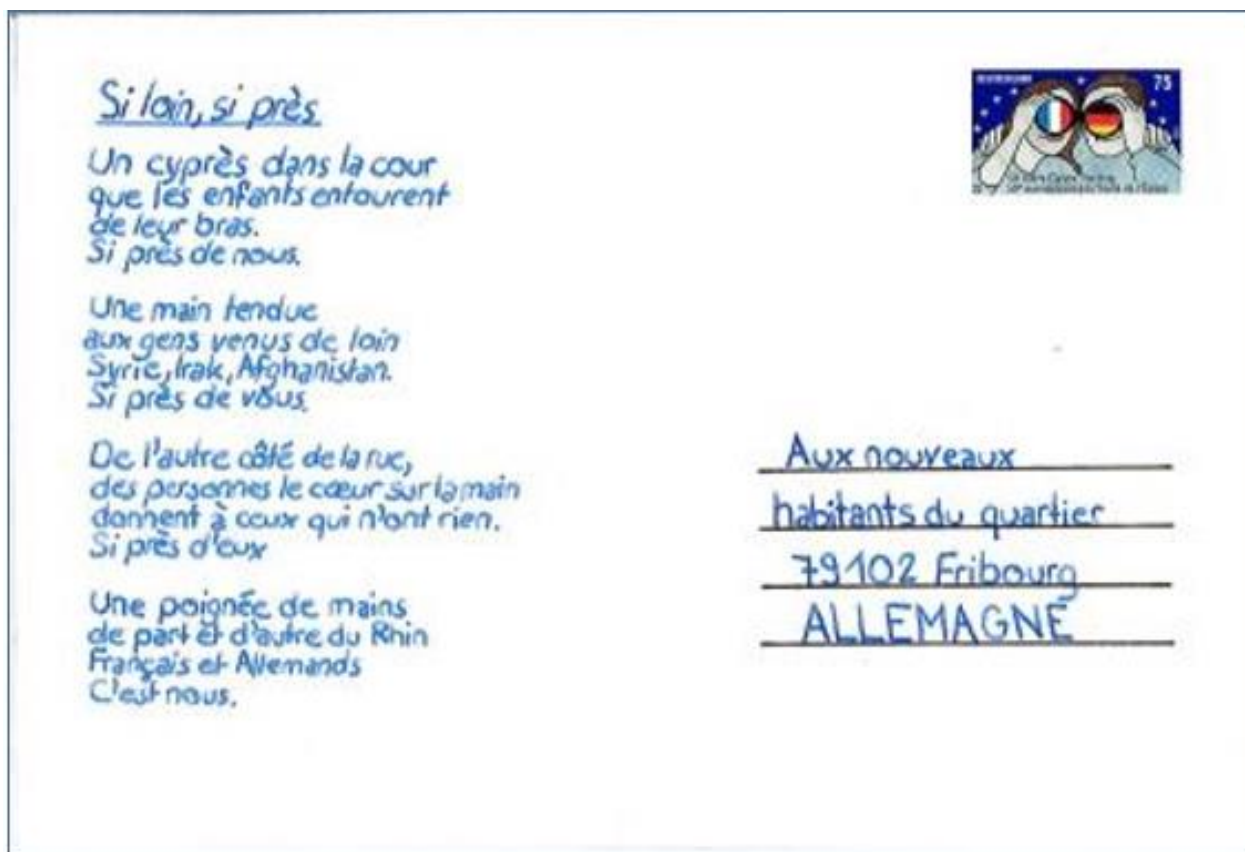 Si loin, si près
Un cyprès dans la cour
que les enfants entourent
de leur bras.
Si près de nous.
Une main tendue
aux gens venus de loin
Syrie, Irak, Afghanistan.
Si près de vous.
De l'autre côté de la rue,
des personnes le cœur sur la main
donnent à ceux qui n'ont rien.
Si près d'eux
Une poignée de mains
de part et d'autre du Rhin
Français et Allemands
C'est nous.
75
Aux nouveaux
habitants du quartier
79102 Fribourg
ALLEMAGNE